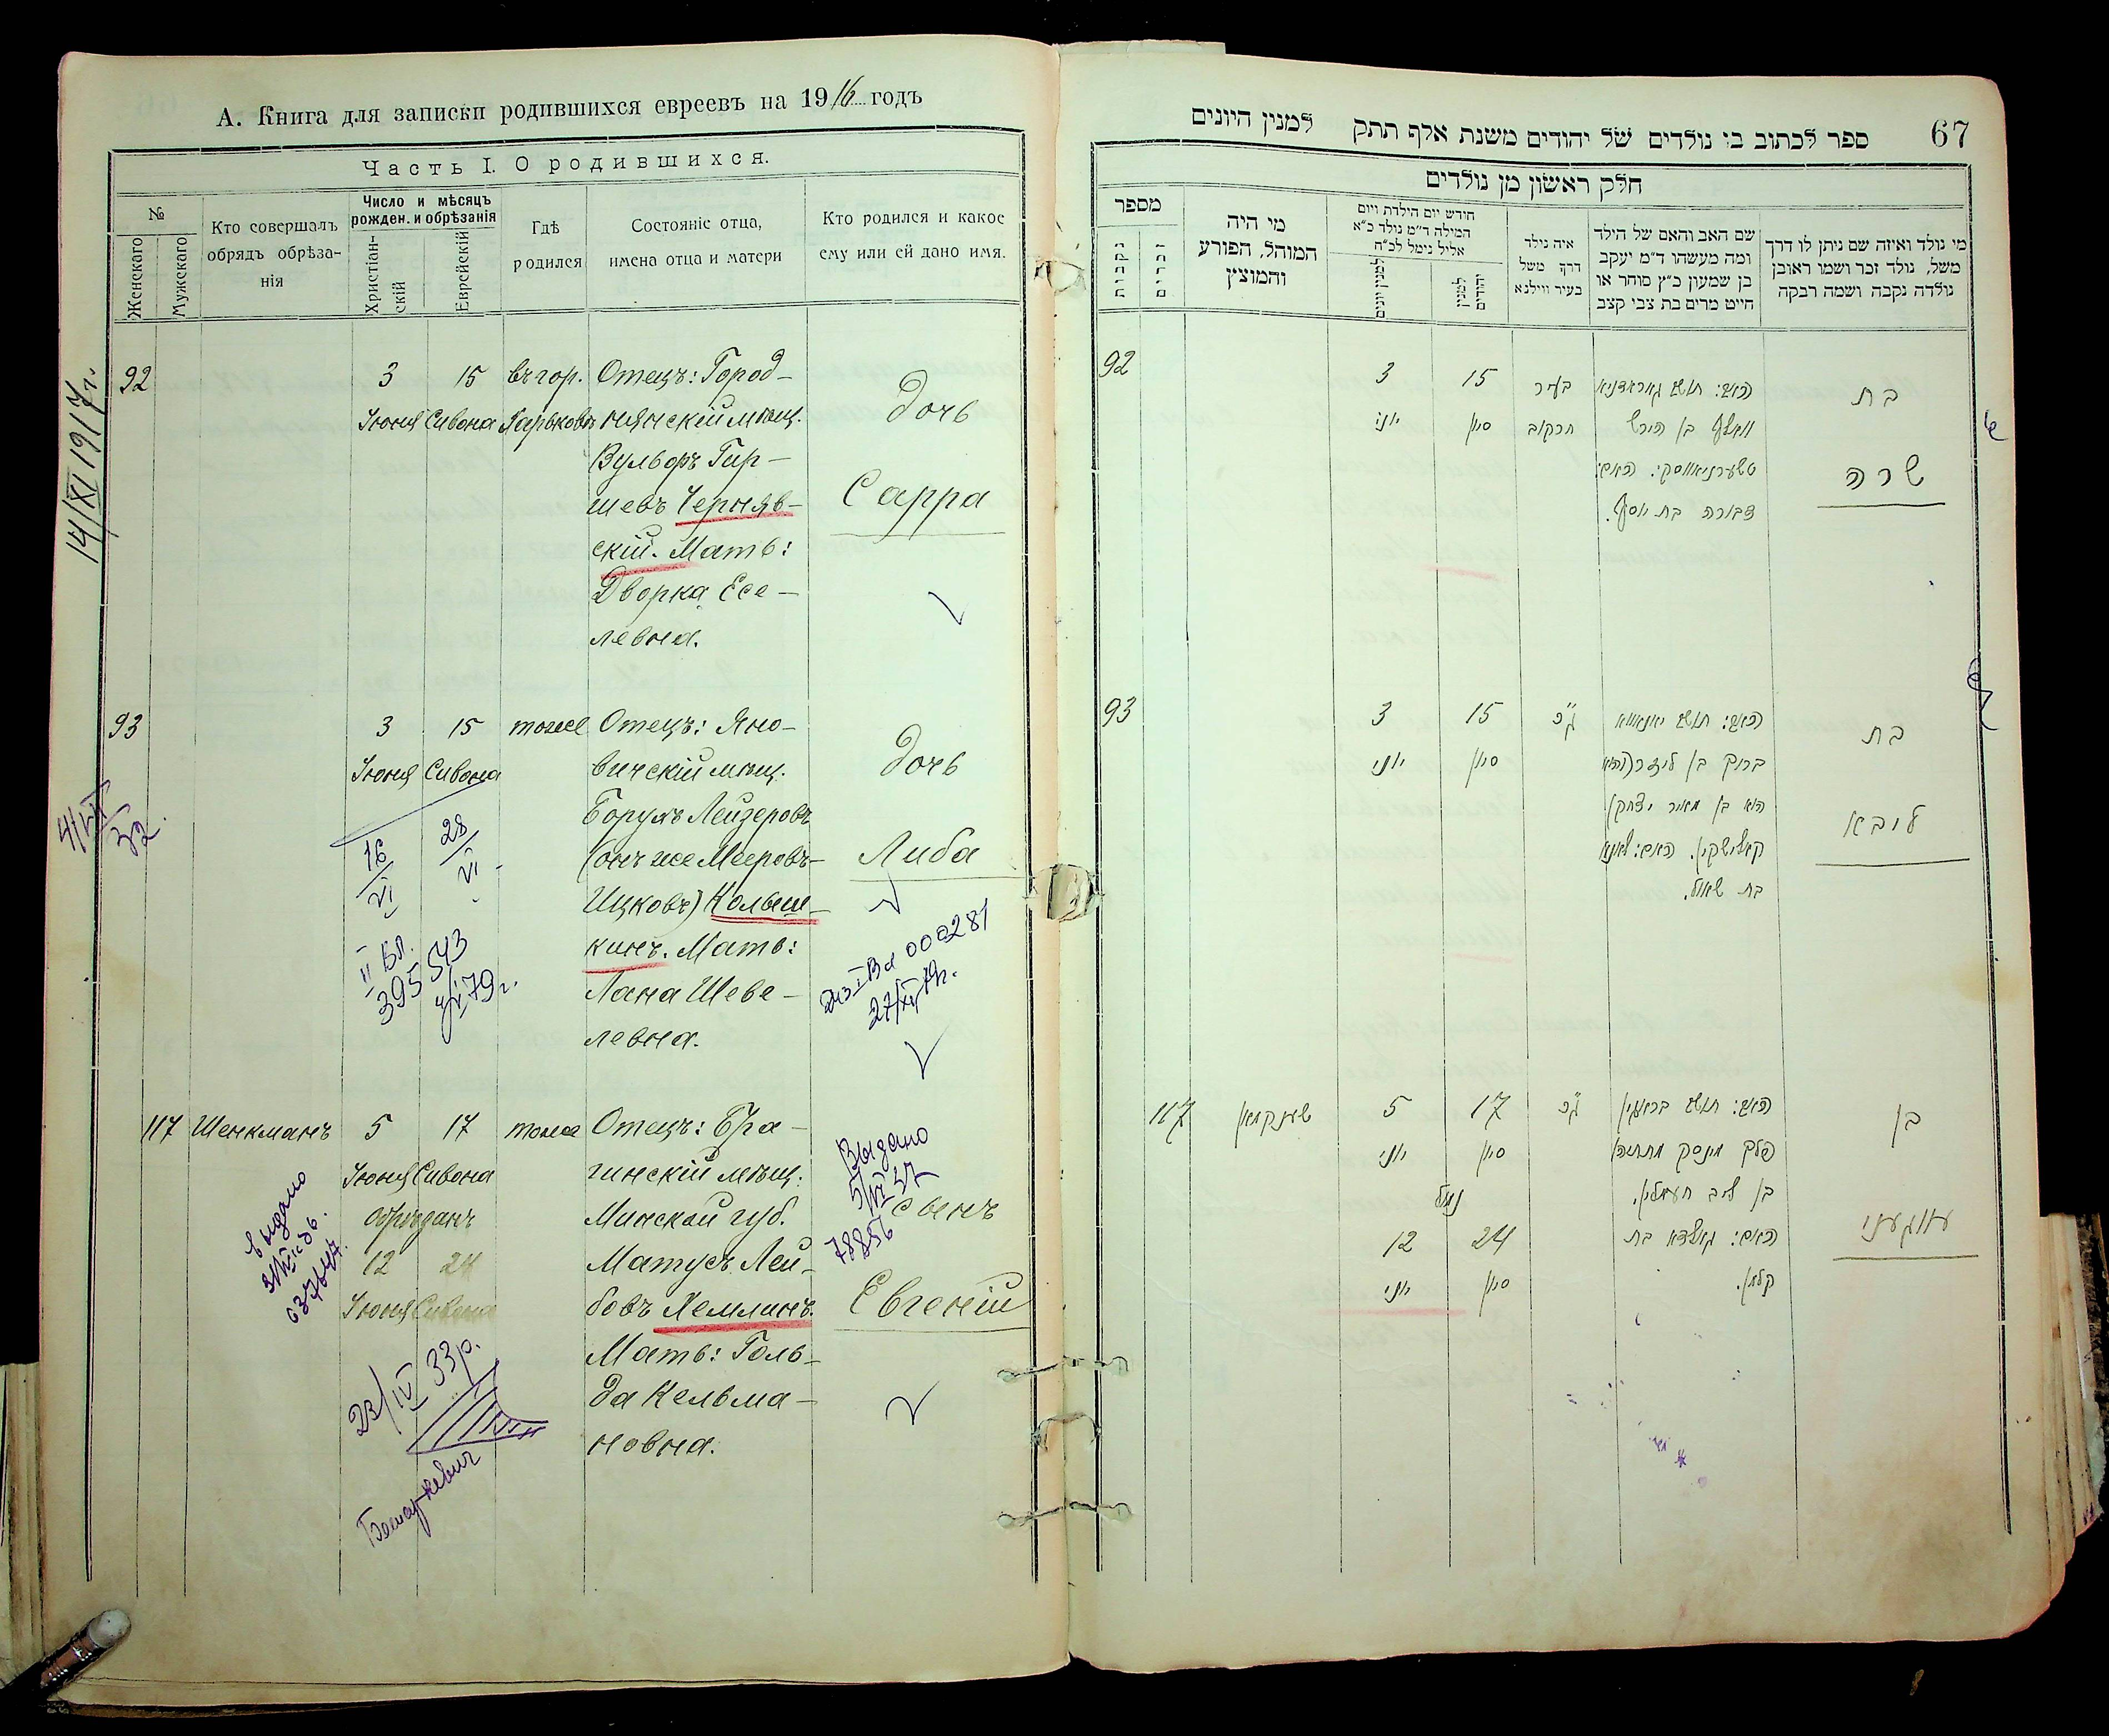 А. Книга для записки родившихся евреевъ на 1916 годъ
Часть I. О родившихся.
№
Женскаго
Мужскаго
Кто совершалъ
обрядъ обрѣза-
нія
Число и мѣсяцъ
рожден. и обрѣзанія
Христіан-
скій
Еврейскій
Гдѣ
родился
Состояніе отца,
имена отца и матери
Кто родился и какое
ему или ей дано имя.
14/XI 1917 г.
92
3
Іюня
15
Сивона
въ гор.
Харьковѣ
Отецъ: Город-
нянскій мѣщ.
Вульфъ Гир-
шевъ Черняв-
скій. Мать:
Дворка Есе-
левна.
дочь
Сарра
93
3
Іюня
15
Сивона
тоже
Отецъ: Яно-
вичскій мѣщ.
Борухъ Лейзеровъ
(онъ же Мееровъ-
Ицковъ) Колыш-
кинъ. Мать:
Лана Шеве-
левна.
дочь
Либа
16
VI
28
VI
395 543
27/XI 79г.
117
Шенкманъ
5
Іюня
17
Сивона
обрѣзанъ
12
Іюня
24
Сивона
тоже
Отецъ: Бра-
гинскій мѣщ.
Минской губ.
Матусъ Лей-
бовъ Хемлинъ.
Мать: Голь-
да Кельма-
новна.
сынъ
Евгеній
Выдано
78856
выдано
23/IV 33р.
67
ספר לכתוב בו נולדים של יהודים משנת אלף תתק למנין היונים
חלק ראשון מן נולדים
מספר
נקבות
זכרים
מי היה
המוהל, הפורע
והמוצץ
חודש יום הילדת ויום
המילה ד״מ נולד כ״א
אליל נימל לכ״ח
למנין יונים
למנין
יהודים
איה נילד
דרך משל
בעיר ווילנא
שם האב והאם של הילד
ומה מעשהו ד״מ יעקב
בן שמעון כ״ץ סוחר או
חייט מרים בת צבי קצב
מי נולד ואיזה שם ניתן לו דרך
משל, נולד זכר ושמו ראובן
נולדה נקבה ושמה רבקה
92
3
יוני
15
סיון
בעיר
חרקוב
האב: תושב גאראדניא
וואלף בן הירש
טשערניאווסקי. האם:
דבורה בת יוסף.
בת
שרה
93
3
יוני
15
סיון
האב: תושב יאנאוויץ
הוא בן מאיר יצחק)
בת
ליבא
117
שענקמאן
5
יוני
17
סיון
נמול
12
יוני
24
סיון
האב: תושב בראגין
פלך מינסק מתתיהו
בן ליב חעמלין.
האם: גאלדא בת
קלמן.
בן